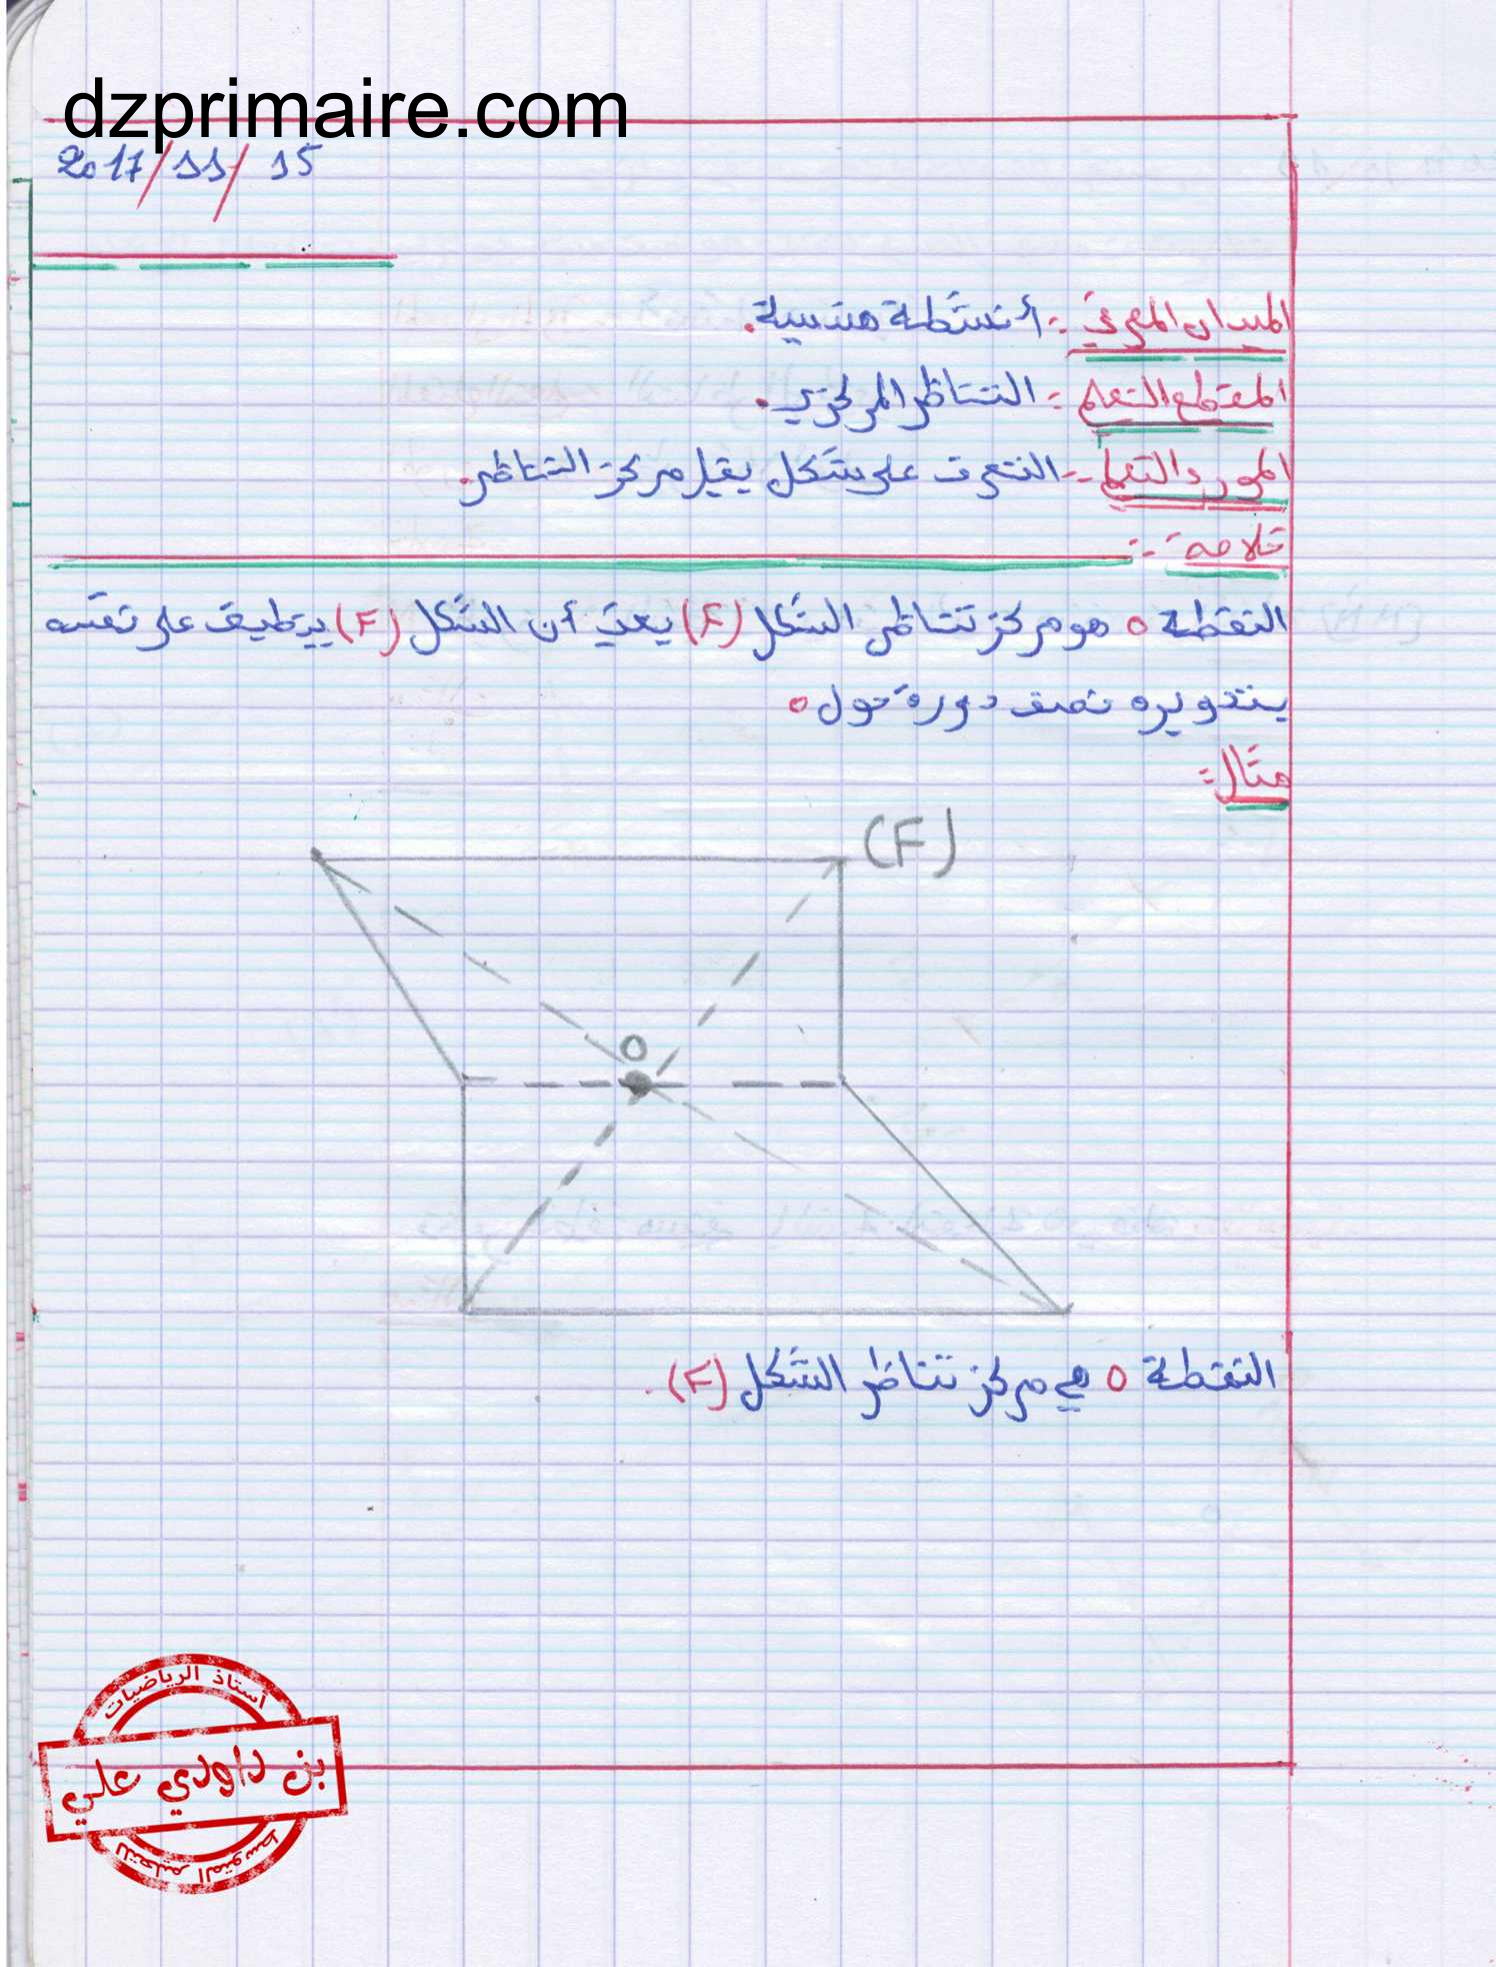 dzprimaire.com
2017/11/15
الميدان المعرفي :- أنشطة هندسية.
المقطع التعلم :- التناظر المركزي.
المورد التعلم :- التعرف على شكل يقبل مركز التناظر.
خلاصة :-
النقطة o هو مركز تناظر الشكل (F) يعني أن الشكل (F) ينطبق على نفسه
بتدويره نصف دورة حول o
مثال :
(F)
O
النقطة o هي مركز تناظر الشكل (F).
أستاذ الرياضيات
بن داودي علي
للتعليم المتوسط